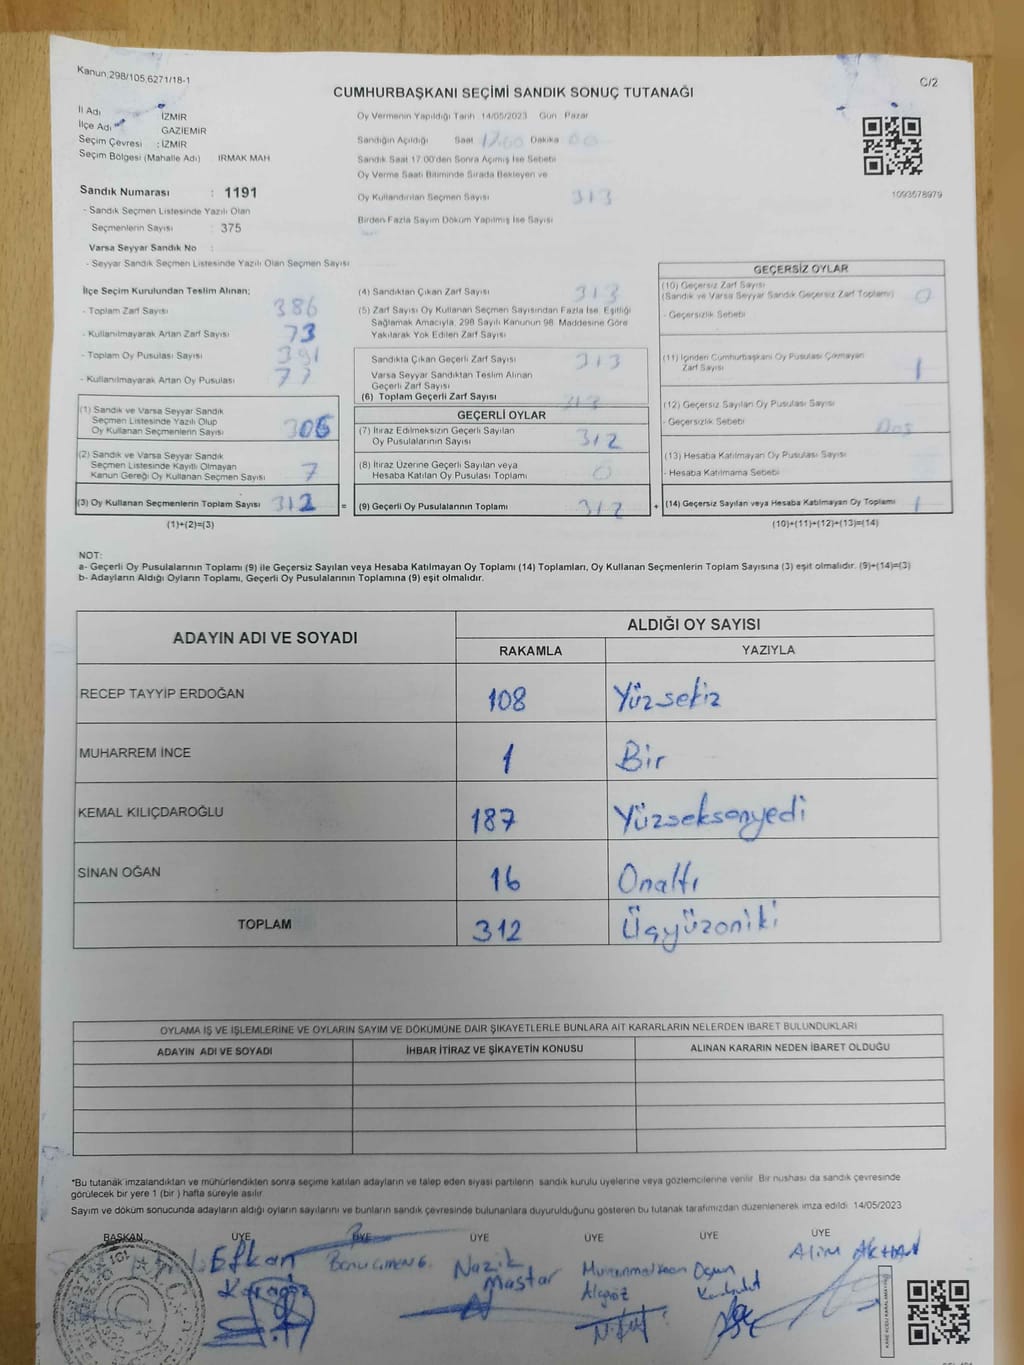 Kanun;298/105,6271/18-1
C/2
CUMHURBAŞKANI SEÇİMİ SANDIK SONUÇ TUTANAĞI
İl Adı : İZMİR
İlçe Adı : GAZİEMİR
Seçim Çevresi : İZMİR
Seçim Bölgesi (Mahalle Adı) IRMAK MAH
Sandık Numarası : 1191
- Sandık Seçmen Listesinde Yazılı Olan
Seçmenlerin Sayısı : 375
Varsa Seyyar Sandık No :
- Seyyar Sandık Seçmen Listesinde Yazılı Olan Seçmen Sayısı
Oy Vermenin Yapıldığı Tarih 14/05/2023 Gün Pazar
Sandığın Açıldığı Saat 17.00 Dakika 00
Sandık Saat 17.00'den Sonra Açılmış İse Sebebi
Oy Verme Saati Bitiminde Sırada Bekleyen ve
Oy Kullandırılan Seçmen Sayısı 313
Birden Fazla Sayım Döküm Yapılmış İse Sayısı
1093578979
İlçe Seçim Kurulundan Teslim Alınan;
- Toplam Zarf Sayısı 386
- Kullanılmayarak Artan Zarf Sayısı 73
- Toplam Oy Pusulası Sayısı 391
- Kullanılmayarak Artan Oy Pusulası 77
(1) Sandık ve Varsa Seyyar Sandık
Seçmen Listesinde Yazılı Olup
Oy Kullanan Seçmenlerin Sayısı 305
(2) Sandık ve Varsa Seyyar Sandık
Seçmen Listesinde Kayıtlı Olmayan
Kanun Gereği Oy Kullanan Seçmen Sayısı 7
(3) Oy Kullanan Seçmenlerin Toplam Sayısı 312 =
(1)+(2)=(3)
(4) Sandıktan Çıkan Zarf Sayısı 313
(5) Zarf Sayısı Oy Kullanan Seçmen Sayısından Fazla İse, Eşitliği
Sağlamak Amacıyla, 298 Sayılı Kanunun 98. Maddesine Göre
Yakılarak Yok Edilen Zarf Sayısı
Sandıkta Çıkan Geçerli Zarf Sayısı 313
Varsa Seyyar Sandıktan Teslim Alınan
Geçerli Zarf Sayısı
(6) Toplam Geçerli Zarf Sayısı 313
GEÇERLİ OYLAR
(7) İtiraz Edilmeksizin Geçerli Sayılan
Oy Pusulalarının Sayısı 312
(8) İtiraz Üzerine Geçerli Sayılan veya
Hesaba Katılan Oy Pusulası Toplamı 0
(9) Geçerli Oy Pusulalarının Toplamı 312 +
GEÇERSİZ OYLAR
(10) Geçersiz Zarf Sayısı
(Sandık ve Varsa Seyyar Sandık Geçersiz Zarf Toplamı) 0
- Geçersizlik Sebebi
(11) İçinden Cumhurbaşkanı Oy Pusulası Çıkmayan
Zarf Sayısı 1
(12) Geçersiz Sayılan Oy Pusulası Sayısı
- Geçersizlik Sebebi
(13) Hesaba Katılmayan Oy Pusulası Sayısı
- Hesaba Katılmama Sebebi
(14) Geçersiz Sayılan veya Hesaba Katılmayan Oy Toplamı 1
(10)+(11)+(12)+(13)=(14)
NOT:
a- Geçerli Oy Pusulalarının Toplamı (9) ile Geçersiz Sayılan veya Hesaba Katılmayan Oy Toplamı (14) Toplamları, Oy Kullanan Seçmenlerin Toplam Sayısına (3) eşit olmalıdır. (9)+(14)=(3)
b- Adayların Aldığı Oyların Toplamı, Geçerli Oy Pusulalarının Toplamına (9) eşit olmalıdır.
ADAYIN ADI VE SOYADI
ALDIĞI OY SAYISI
RAKAMLA YAZIYLA
RECEP TAYYİP ERDOĞAN 108 Yüzsekiz
MUHARREM İNCE 1 Bir
KEMAL KILIÇDAROĞLU 187 Yüzseksenyedi
SİNAN OĞAN 16 Onaltı
TOPLAM 312 Üçyüzoniki
OYLAMA İŞ VE İŞLEMLERİNE VE OYLARIN SAYIM VE DÖKÜMÜNE DAİR ŞİKAYETLERLE BUNLARA AİT KARARLARIN NELERDEN İBARET BULUNDUKLARI
ADAYIN ADI VE SOYADI İHBAR İTİRAZ VE ŞİKAYETİN KONUSU ALINAN KARARIN NEDEN İBARET OLDUĞU
*Bu tutanak imzalandıktan ve mühürlendikten sonra seçime katılan adayların ve talep eden siyasi partilerin sandık kurulu üyelerine veya gözlemcilerine verilir. Bir nushası da sandık çevresinde
görülecek bir yere 1 (bir ) hafta süreyle asılır.
Sayım ve döküm sonucunda adayların aldığı oyların sayılarını ve bunların sandık çevresinde bulunanlara duyurulduğunu gösteren bu tutanak tarafımızdan düzenlenerek imza edildi. 14/05/2023
BAŞKAN ÜYE ÜYE ÜYE ÜYE ÜYE ÜYE
Efkan
Nazik
Mastar
Alim AKHAN
Ogün